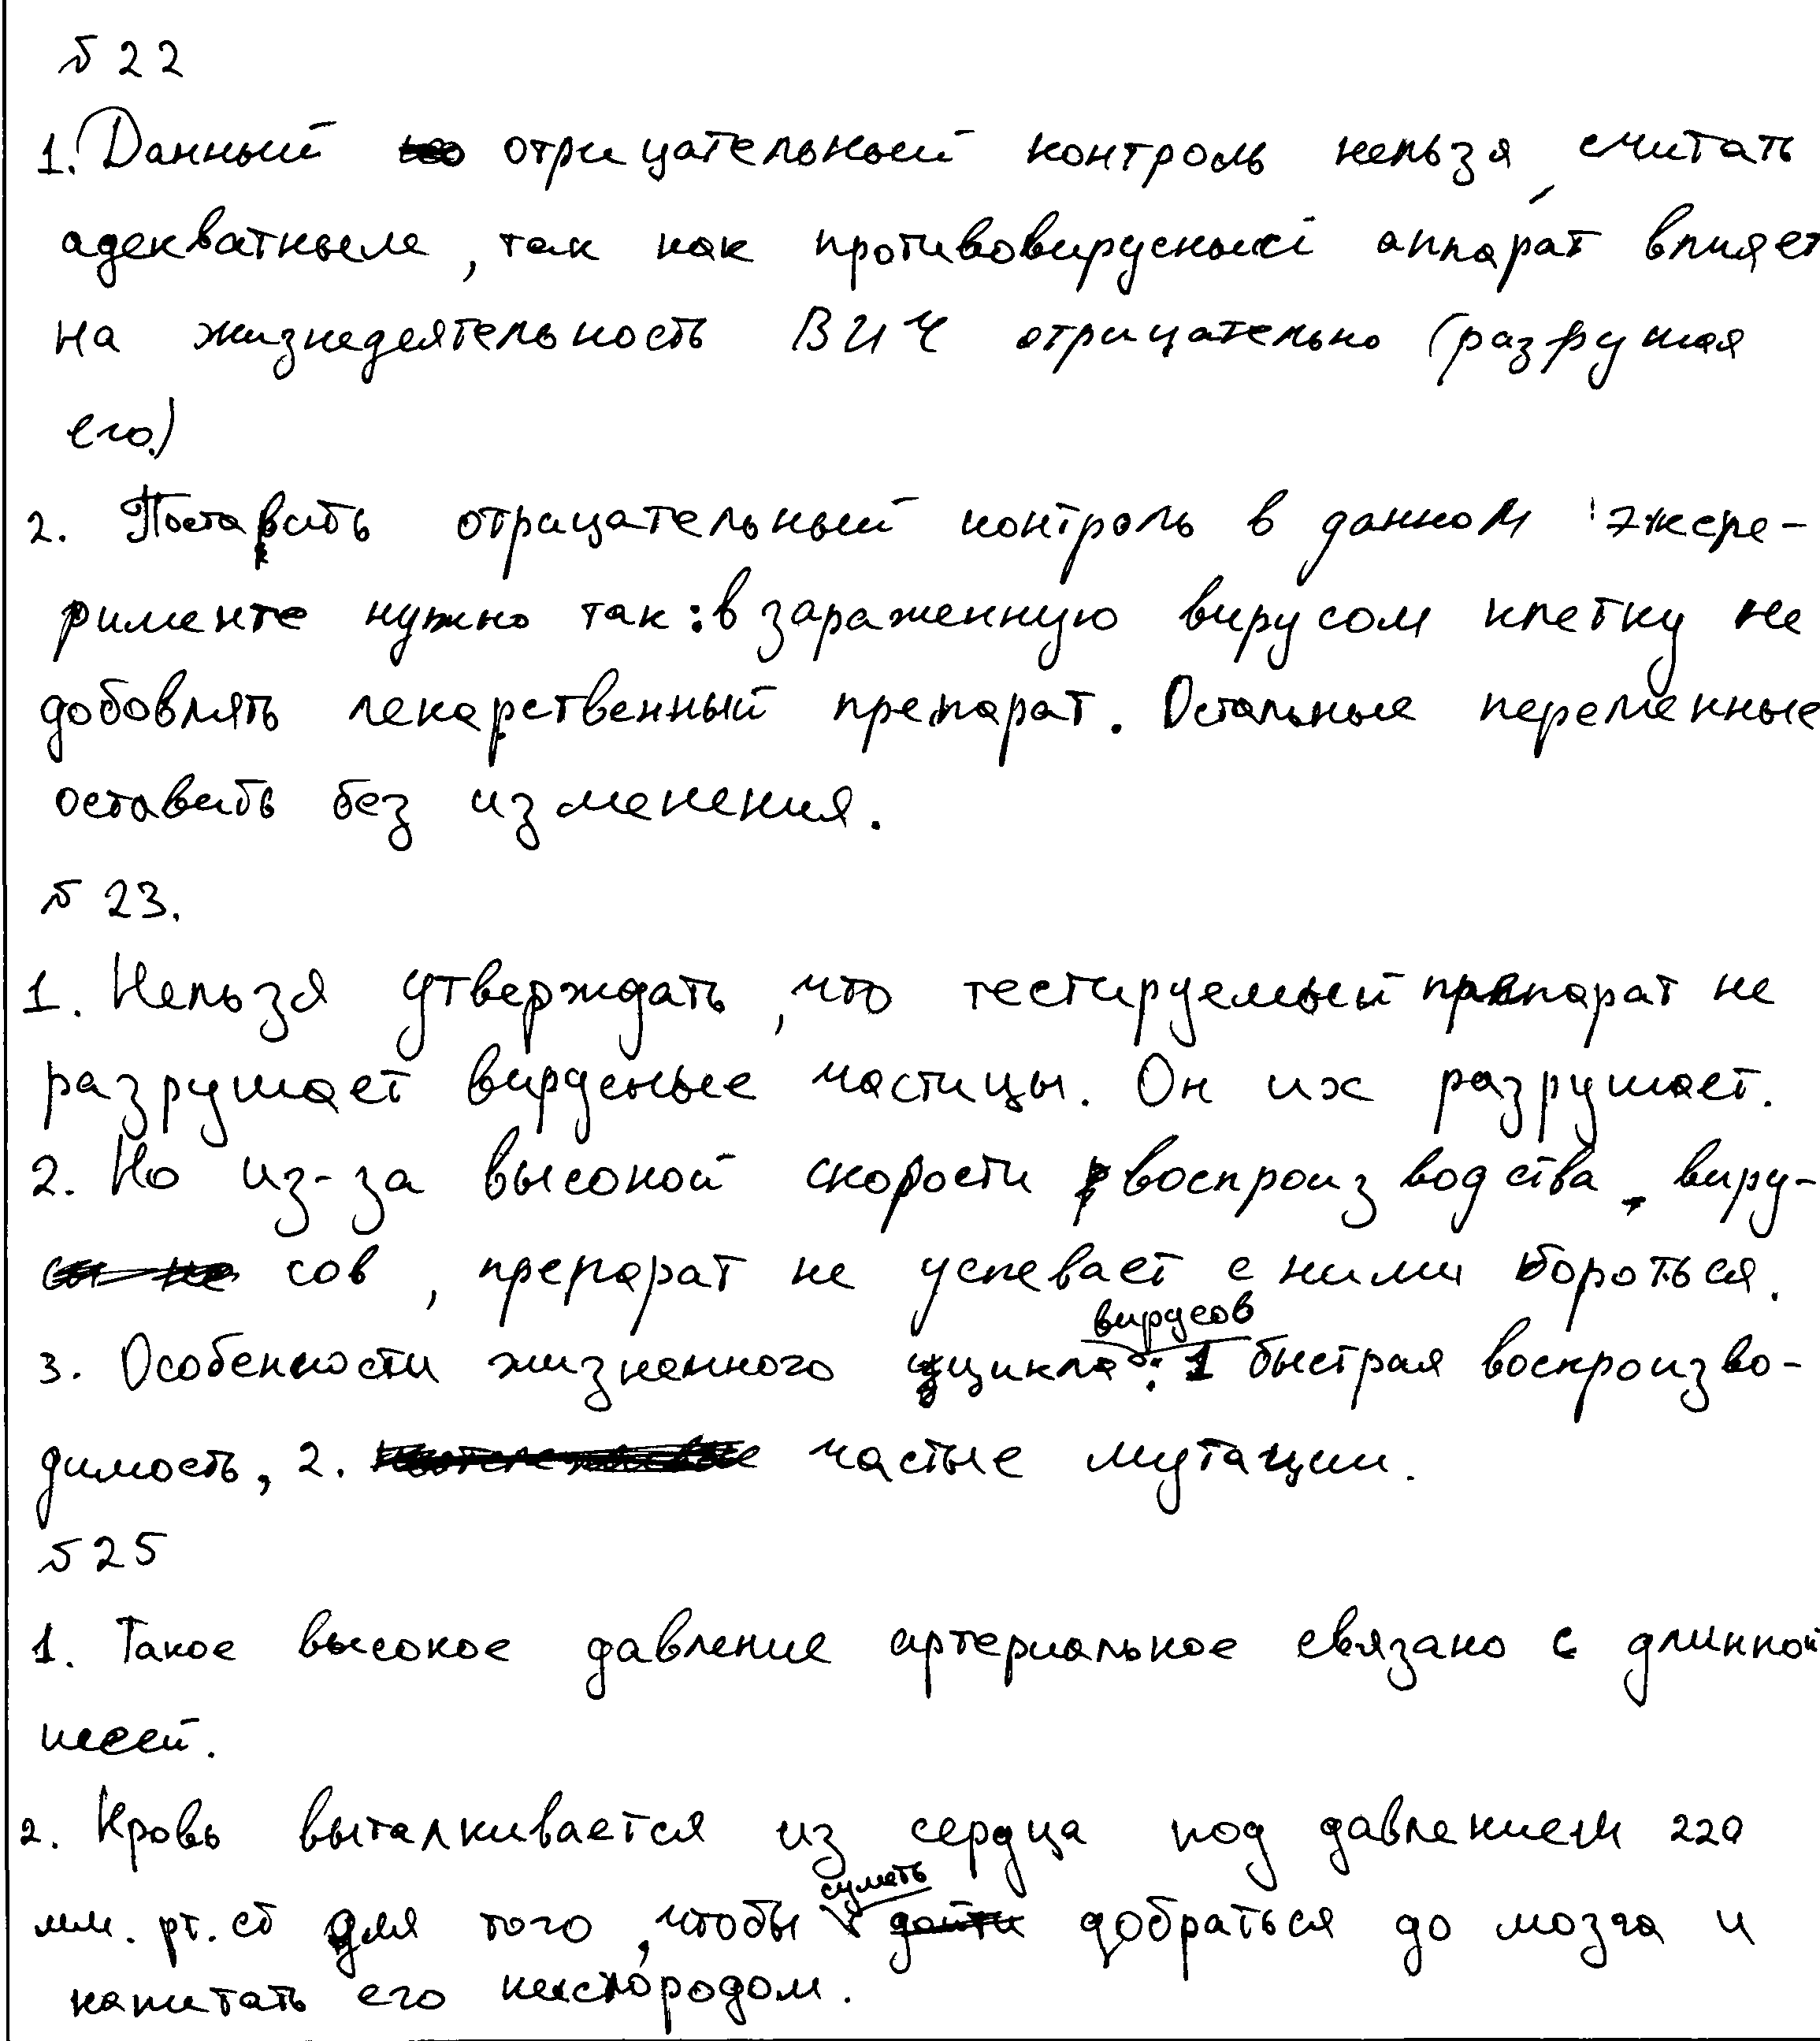 № 22
1. Данный отрицательный контроль нельзя считать
адекватным, так как противовирусный аппарат влияет
на жизнедеятельность ВИЧ отрицательно (разрушая
его.)
2. Поставить отрицательный контроль в данном экспе-
рименте нужно так: в зараженную вирусом клетку не
добовлять лекарственный препарат. Остальные переменные
оставить без изменения.
№ 23.
1. Нельзя утверждать, что тестируемый препарат не
разрушает вирусные частицы. Он их разрушает.
2. Но из-за высокой скорости воспроизводства виру-
сов, препарат не успевает с ними бороться.
3. Особенности жизненного цикла вирусов: 1 быстрая воспроизво-
димость, 2. частые мутации.
№ 25
1. Такое высокое давление артериальное связано с длинной
шеей.
2. Кровь выталкивается из сердца под давлением 220
мм. рт. ст для того, чтобы суметь добраться до мозга и
напитать его кислородом.